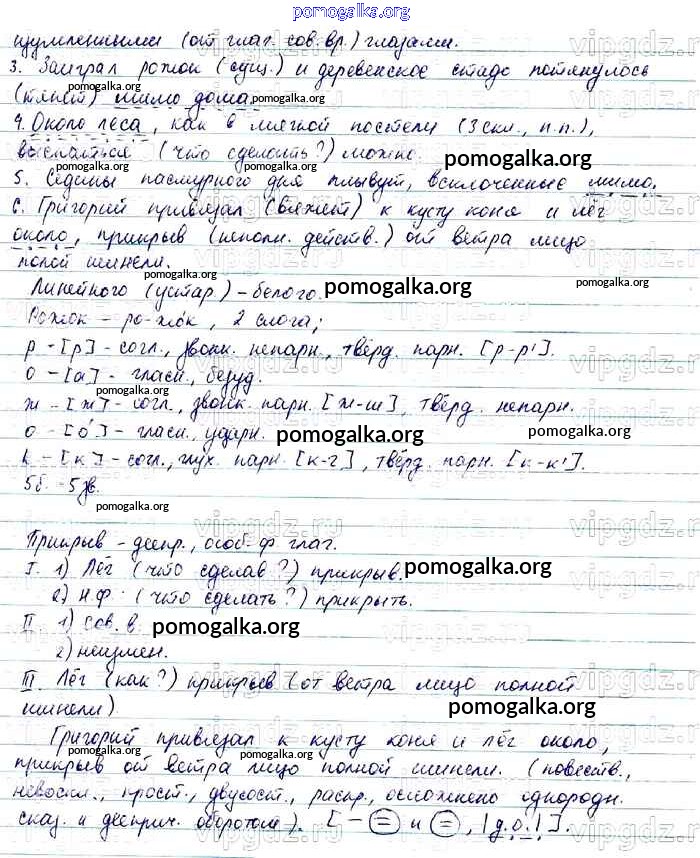 pomogalka.org
изумленными (от глаг. сов. вр.) глазами.
3. Заиграл рожок (сущ.) и деревенское стадо потянулось
(тянет) мимо дома. pomogalka.org
4. Около леса, как в мягкой постели (3 скл., п.п.),
выспаться (что сделать?) можно. pomogalka.org
5. Седины пасмурного дня плывут, всклоченные мимо.
6. Григорий привязал (вяжет) к кусту коня и лёг
около, прикрыв (неполн. действ.) от ветра лицо
полой шинели. pomogalka.org
Линейного (устар.) – белого. pomogalka.org
Рожок – ро-жок, 2 слога;
р – [р] – согл., звонк. непарн., твёрд. парн. [р-р'].
о – [а] – гласн., безуд. pomogalka.org
ж – [ж] – согл., звонк. парн. [ж-ш], твёрд. непарн.
о – [о́] – гласн., ударн. pomogalka.org pomogalka.org
к – [к] – согл., глух. парн. [к-г], твёрд. парн. [к-к'].
5б. – 5 зв. pomogalka.org
vipgdz.ru
Прикрыв – деепр., особ. ф. глаг.
I. 1) Лёг (что сделав?) прикрыв. pomogalka.org
2) Н.ф.: (что сделать?) прикрыть.
II 1) сов. в. pomogalka.org
2) неизмен.
III. Лёг (как?) прикрыв (от ветра лицо полной
шинели) pomogalka.org
Григорий привязал к кусту коня и лёг около,
pomogalka.org pomogalka.org
прикрыв от ветра лицо полной шинели. (повеств.,
невоскл., прост., двусост., распр., осложнено однородн.
сказ. и дееприч. оборотом). [– = и =, |д.о.|].